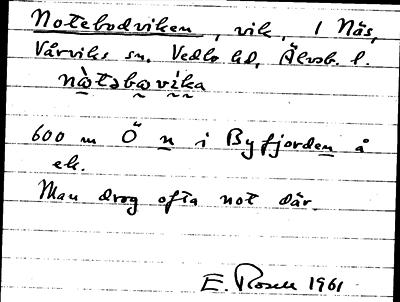 Notebodviken, vik, 1 Näs,
Vårviks sn. Vedbo hd, Älvsb. l.
nὼtəbωvìka
600 m Ö n i Byfjorden å
ek.
Man drog ofta not där.
E. Rosell 1961